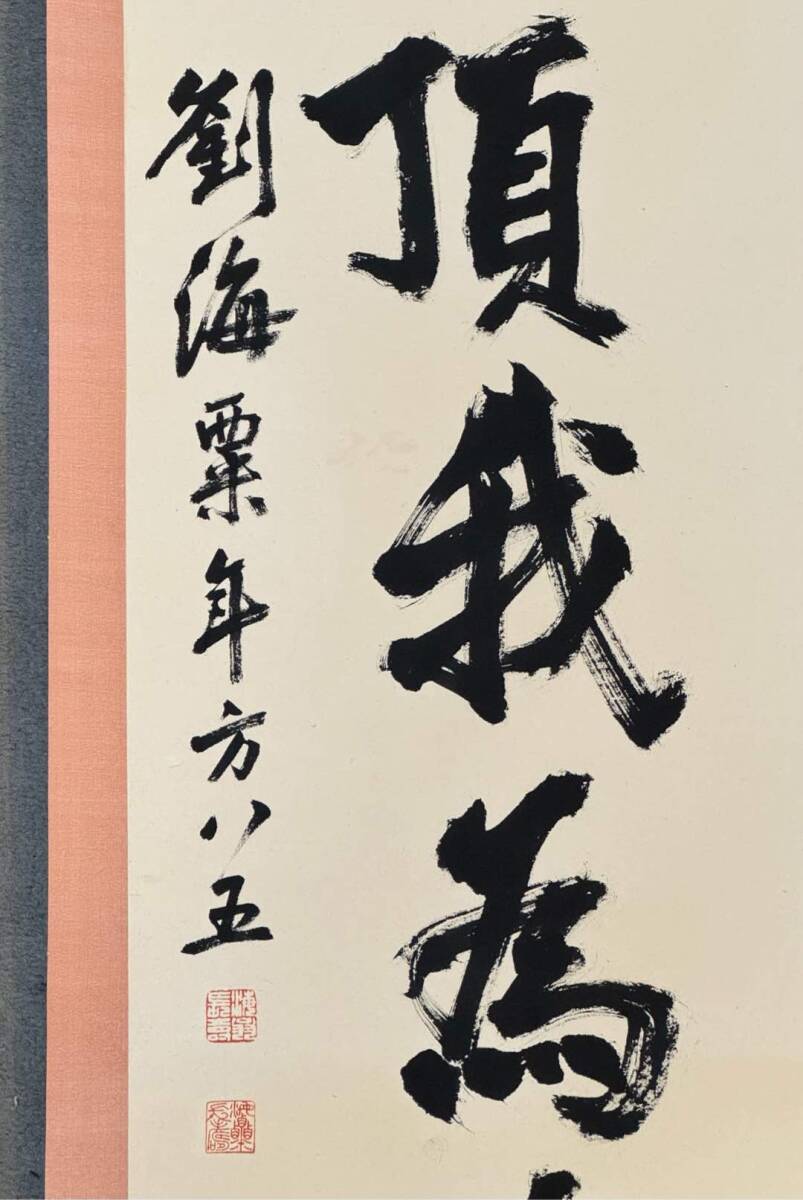 頂我為
劉海粟年方八五